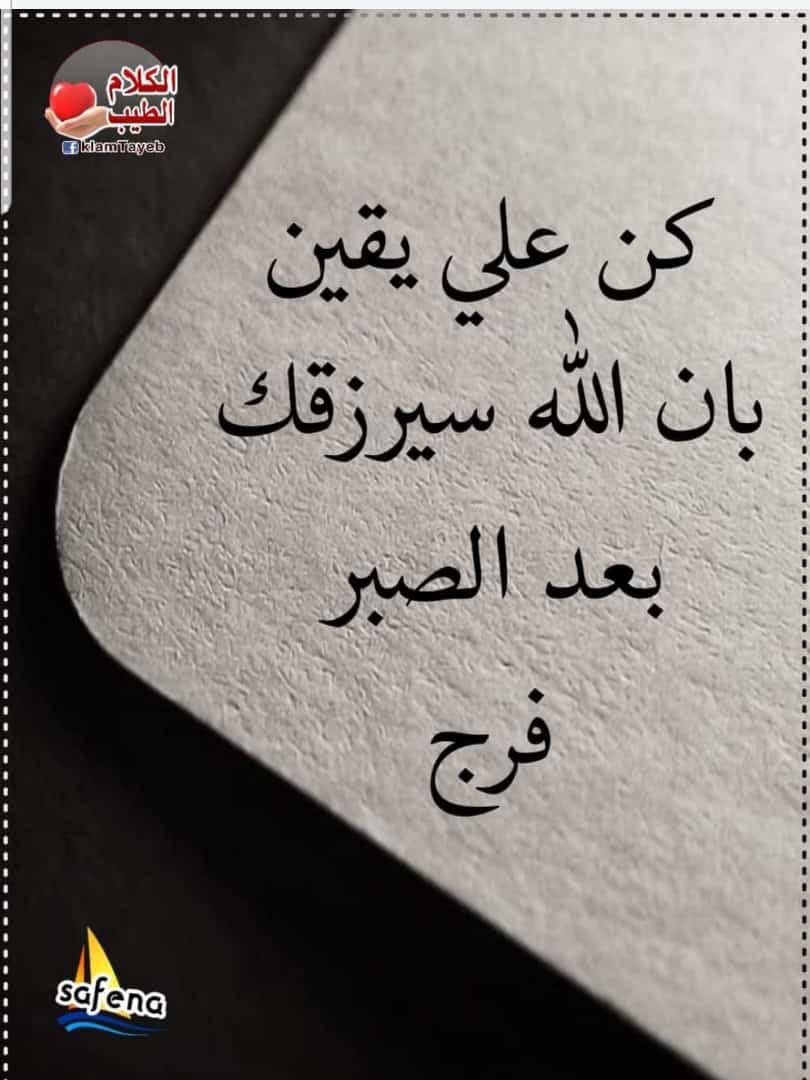 الكلام
الطيب
klamTayeb
كن علي يقين
بان الله سيرزقك
بعد الصبر
فرج
safena